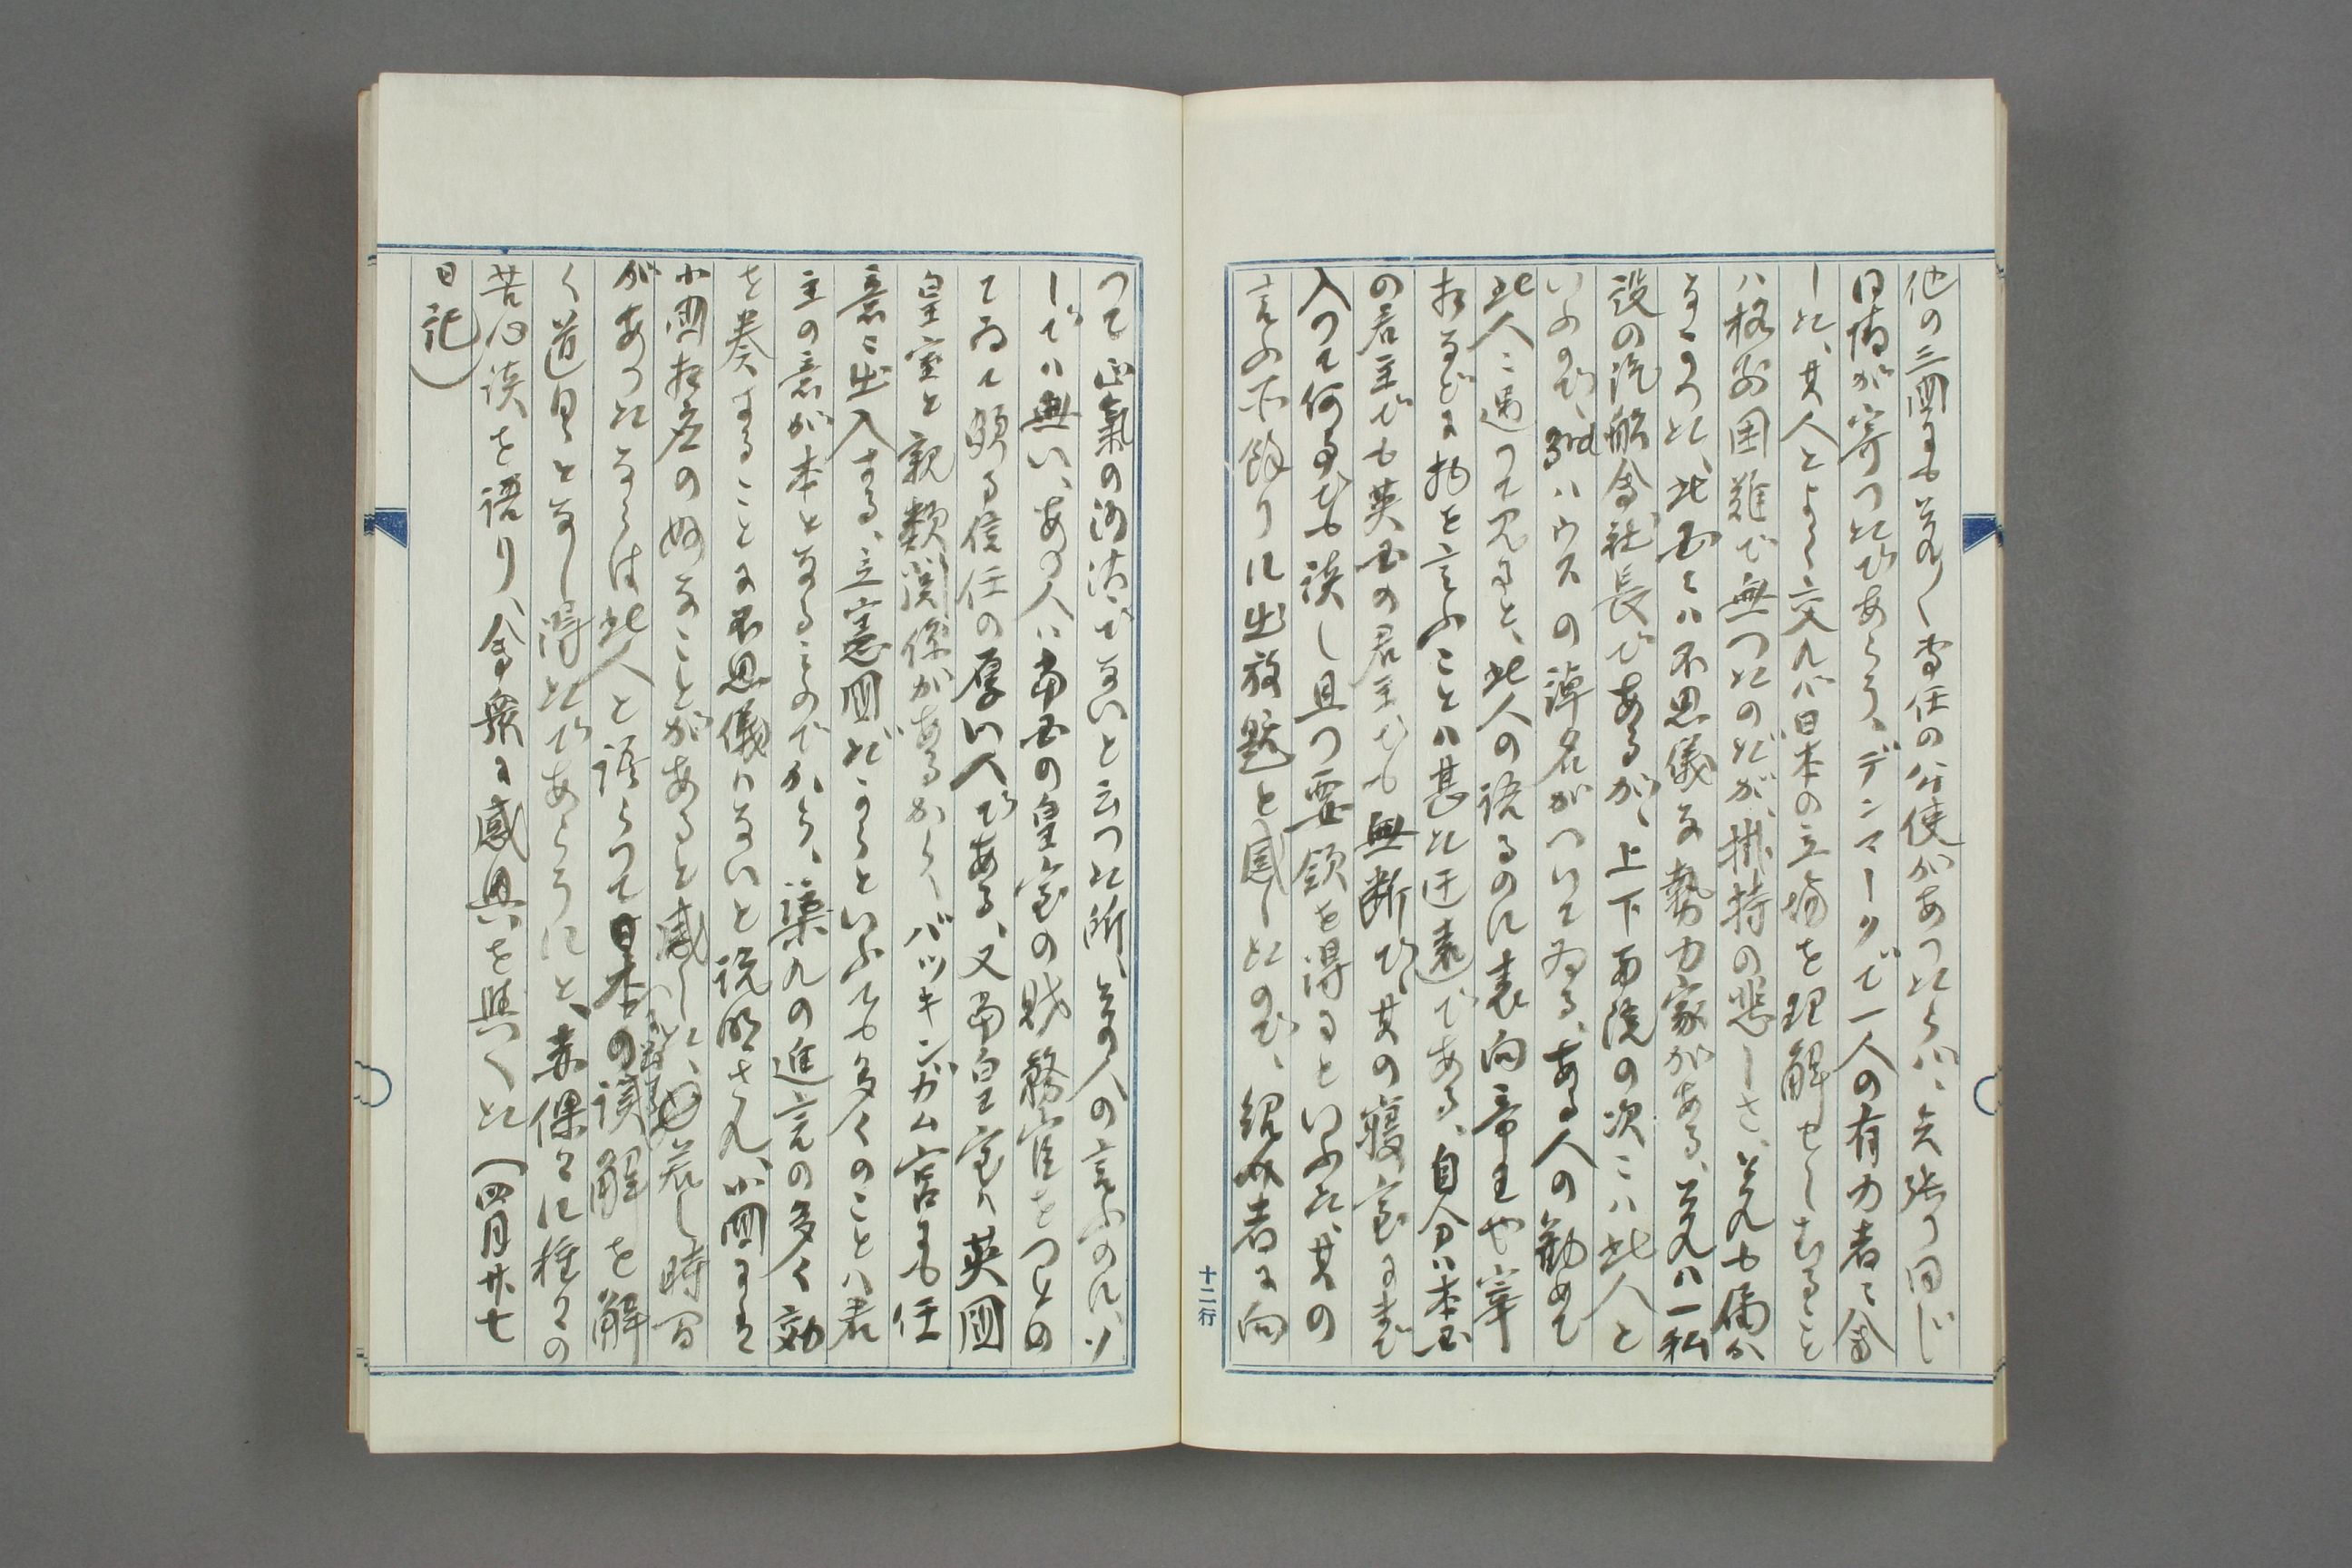 他の三國にも若しく専任の公使があつたらバ、矢張り同じ
同情が寄つたであらう、デンマークで一人の有力者に会
した、其人とよく交れバ日本の立場を理解せしむること
ハ格別困難で無つたのだが、掛持の悲しさ、それも届か
なかつた、此國にハ不思儀な勢力家がある、それハ一私
設の汽船会社長であるが、上下両院の次にハ此人と
いふので、3rdハウスの諢名がついてゐる、ある人の勧めで
此人に遇つて見ると、此人の語るのに表向帝王や宰
相などに物を言ふことハ甚だ迂遠である、自分ハ本国
の君主でも英国の君主でも無断で、其の寝室にまで
入つて何事でも談し且つ要領を得るといふた、其の
言ふ所餘りに出放題と感したので、紹介者に向
つて正氣の沙汰でないと云つた所、其の人の言ふのに、ソ
レでハ無い、あの人ハ当国の皇室の財務官をつとめ
てゐて頗る信任の厚い人である、又当皇室ハ英國
皇室と親類関係があるから、バッキンガム宮にも任
意に出入する、立憲國だからといふても多くのことハ君
主の意が本となるものだから、渠れの進言の多く効
を奏することに不思儀ハないと説明された、小國にハ
小國相応の妙なことがあると感した、若し時間
があつたならは此人と語らつて日本の誤解を解
く道具となし得たであらうにと、赤裸々に種々の
苦心談を語り、会衆に感興を與へた（四月廿七
日記）
十二行